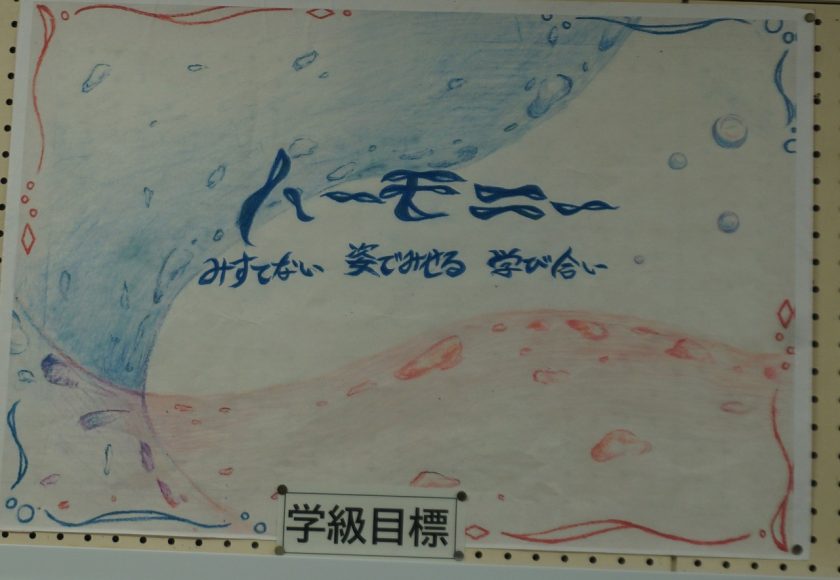 ハーモニー
みすてない 姿でみせる 学び合い
学級目標